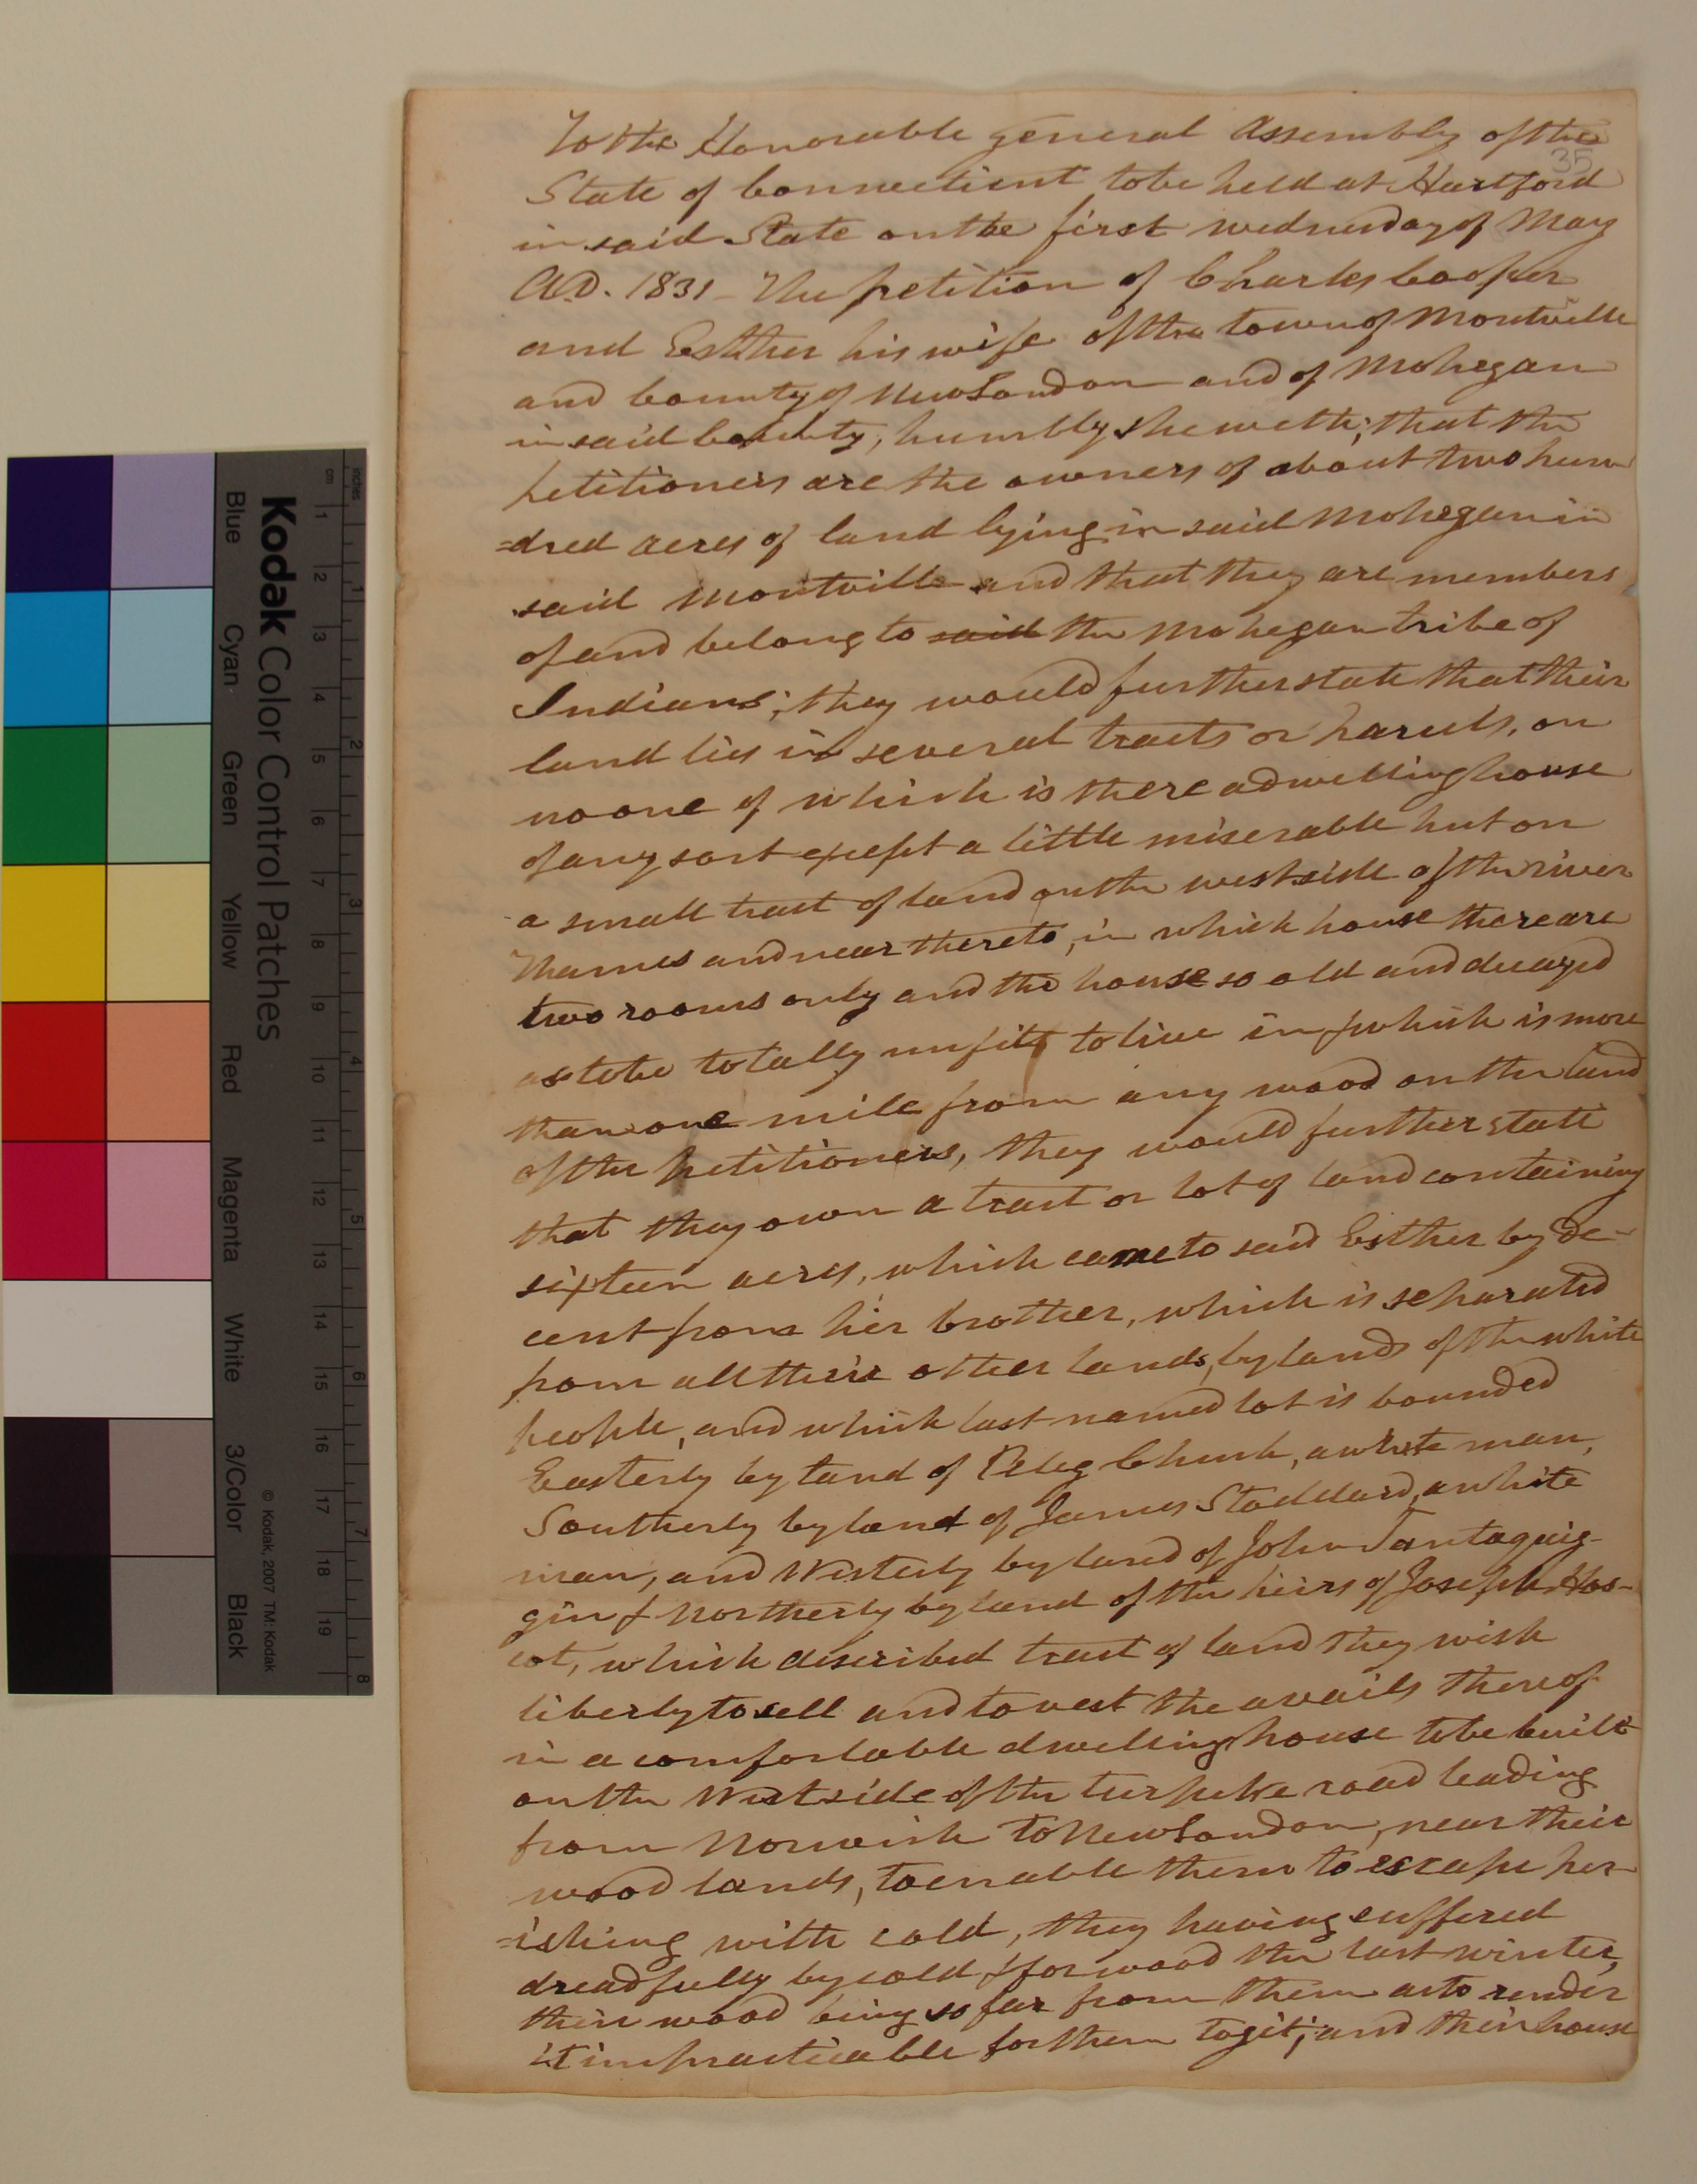 To the Honorable general Assembly of the
35
State of Connecticut to be held at Hartford
in said State on the first wednesday of May
A.D. 1831 - The petition of Charles Cooper
and Esther his wife of the town of Montville
and County of New London and of Mohegan
in said County, humbly sheweth; that the
petitioners are the owners of about two hun
=dred acres of land lying in said Mohegan in
said Montville and that they are members
of and belong to said the Mohegan tribe of
Indians; they would further state that their
land lies in several tracts or parcels, on
no one of which is there a dwelling house
of any sort except a little miserable hut on
a small tract of land on the west side of the river
Thames and near thereto, in which house there are
two rooms only and the house so old and decayed
as to be totally unfitt to live in & which is more
than one mile from any wood on the land
of the petitioners, they would further state
that they own a tract or lot of land containing
sixteen acres, which came to said Esther by De-
cent from her brother, which is separated
from all their other lands, by lands of the white
people, and which last named lot is bounded
Easterly by land of Peleg Church, a white man,
Southerly by land of James Stoddard, a white
man, and Westerly by land of John Tantaquig-
gin & Northerly by land of the heirs of Joseph Hos-
cot, which described tract of land they wish
liberty to sell and to vest the avails thereof
in a comfortable dwelling house to be built
on the West side of the turpike road leading
from Norwich to New London, near their
wood lands, to enable them to escape per
=ishing with cold, they having suffered
dreadfully by cold & for wood the last winter,
their wood being so far from them as to render
it impracticable for them to git; and their house
Kodak Color Control Patches
© Kodak, 2007 TM: Kodak
Blue
Cyan
Green
Yellow
Red
Magenta
White
3/Color
Black
inches
cm
1
2
3
4
5
6
7
8
9
10
11
12
13
14
15
16
17
18
19
1
2
3
4
5
6
7
8